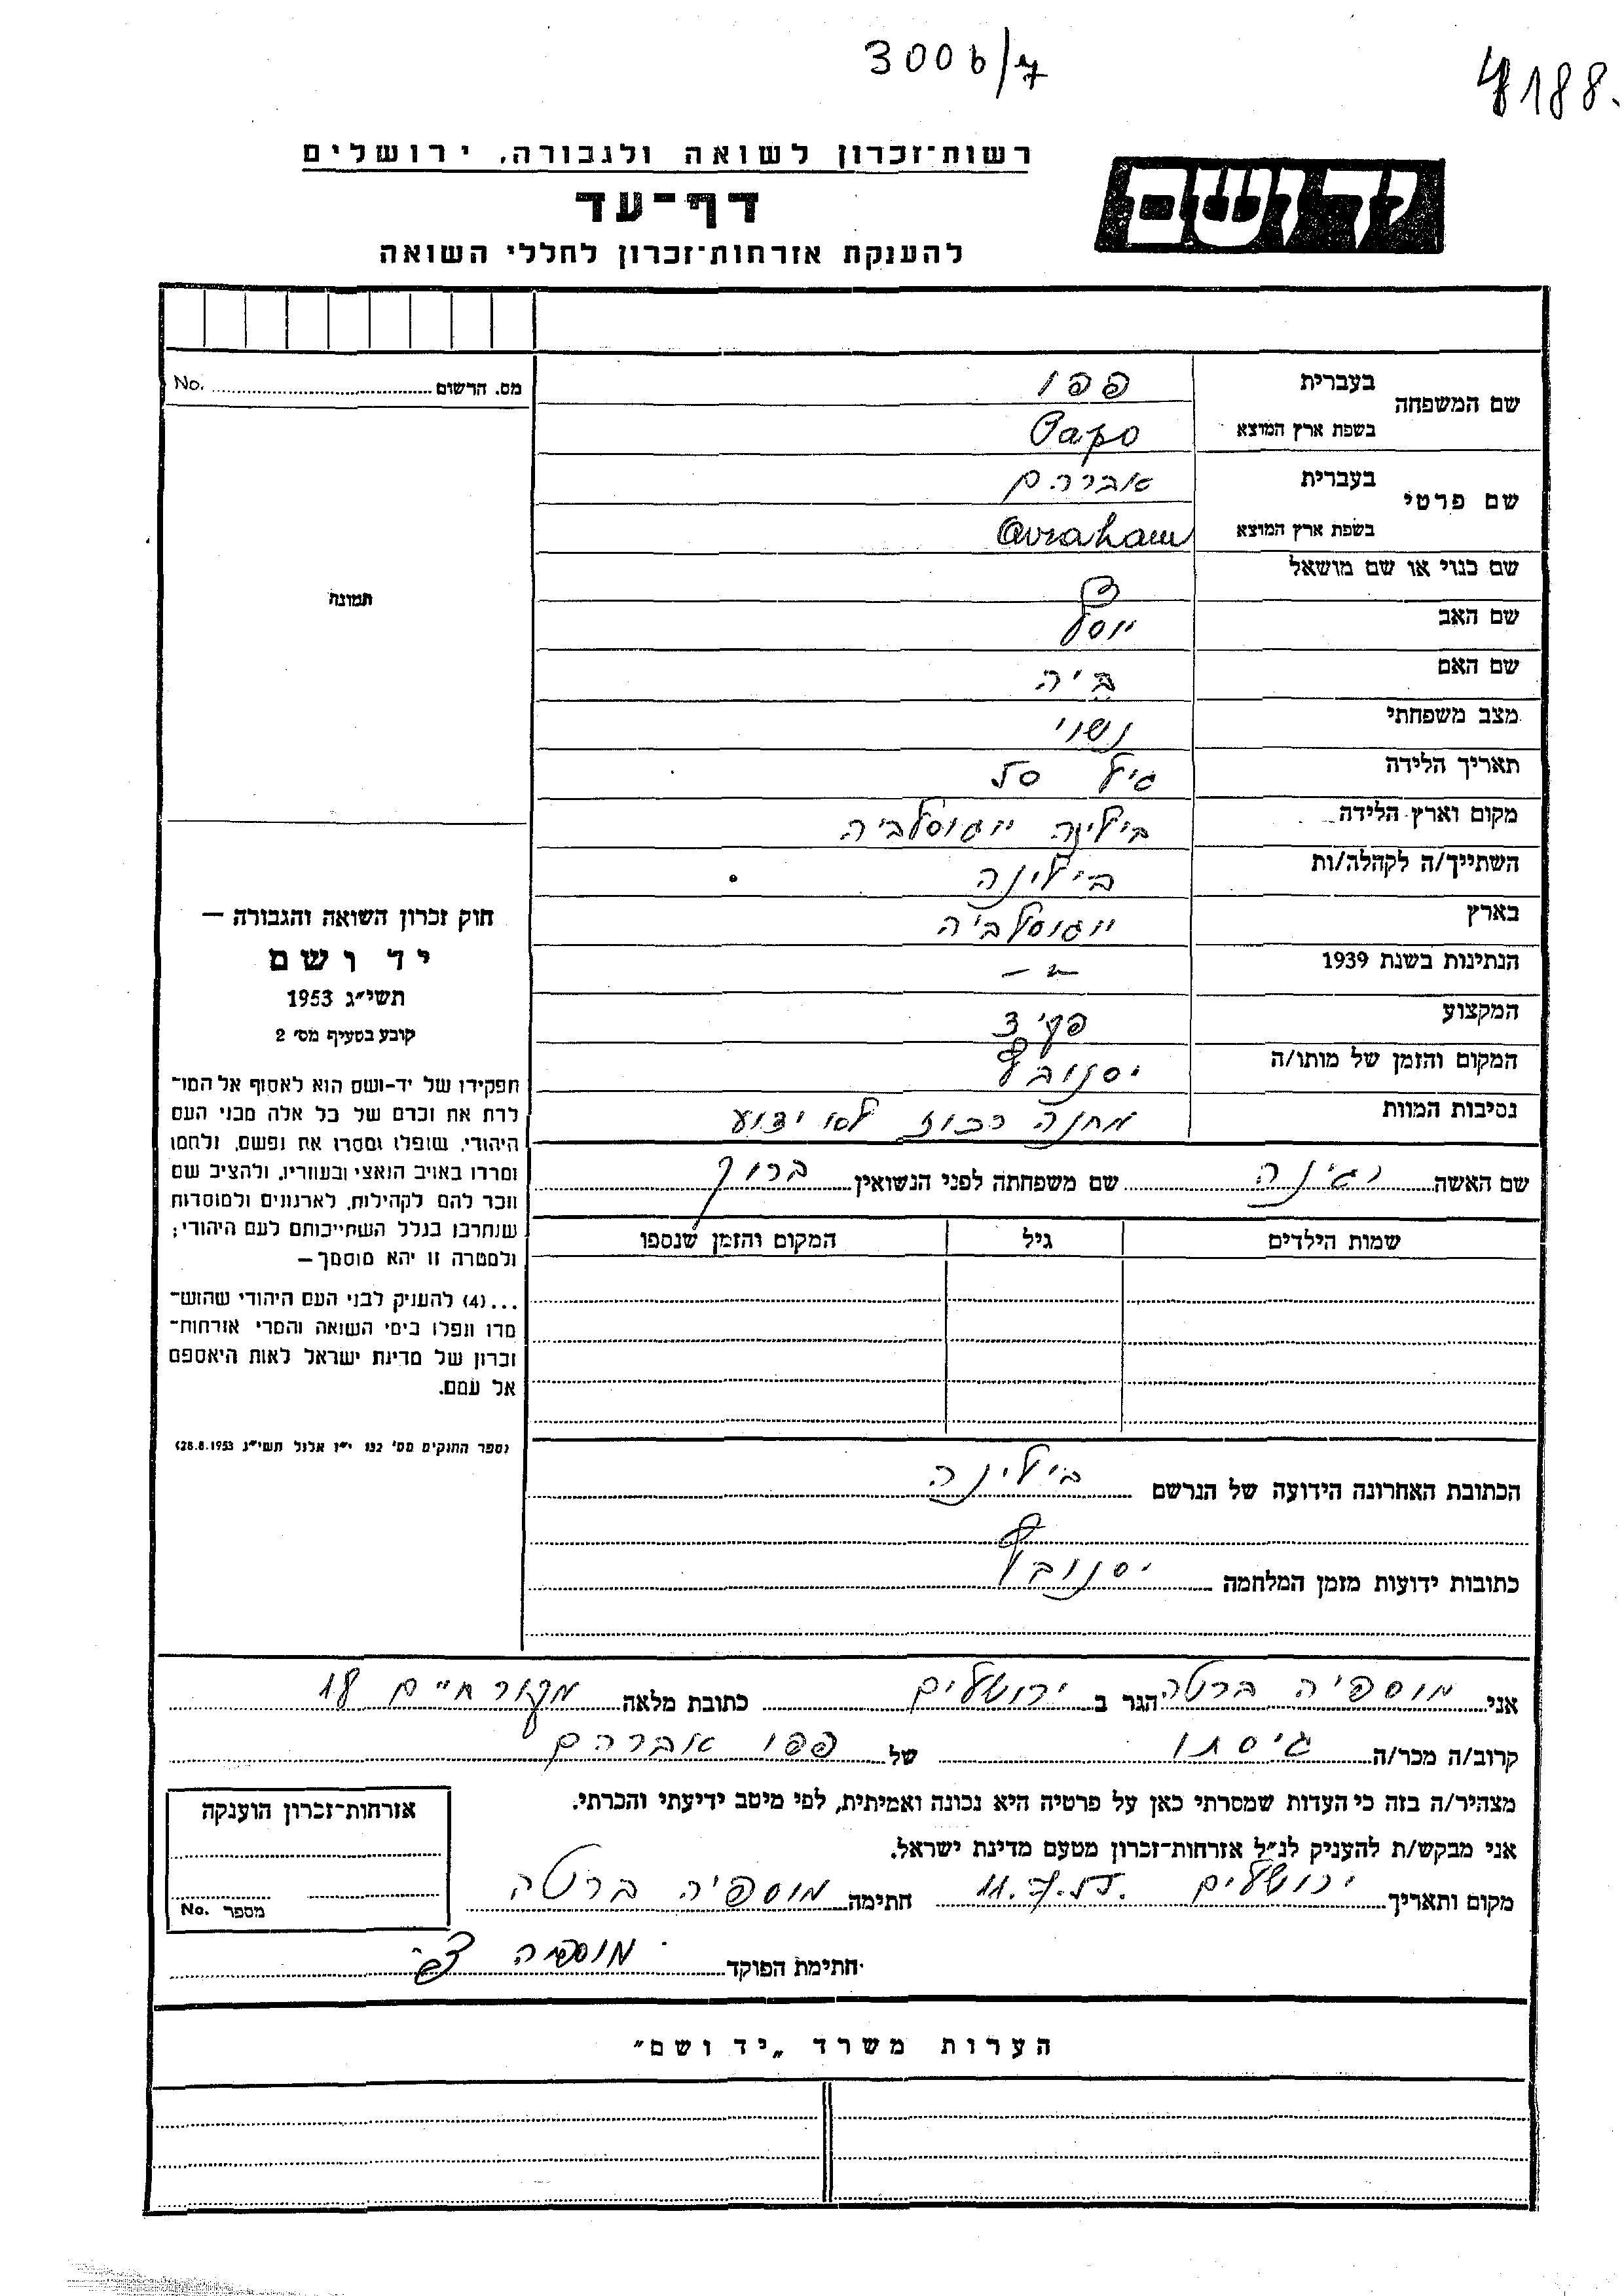 3006/7
4188.
רשות־זכרון לשואה ולגבורה, ירושלים
יד ושם
דף־עד
להענקת אזרחות־זכרון לחללי השואה
מס. הרשום No.
תמונה
שם המשפחה
בעברית פפו
בשפת ארץ המוצא Papo
שם פרטי
בעברית אברהם
בשפת ארץ המוצא Avraham
שם כנוי או שם מושאל
שם האב יוסף
שם האם ביה
מצב משפחתי נשוי
תאריך הלידה גיל
מקום וארץ הלידה בילינה יוגוסלביה
השתייך/ה לקהלה/ות בילינה
בארץ יוגוסלביה
הנתינות בשנת 1939 — —
המקצוע פקיד
המקום והזמן של מותו/ה יסנובץ
נסיבות המוות מחנה רכוז לא ידוע
שם האשה שם משפחתה לפני הנשואין ברוך
שמות הילדים גיל המקום והזמן שנספו
הכתובת האחרונה הידועה של הנרשם בילינה
כתובות ידועות מזמן המלחמה יסנובץ
חוק זכרון השואה והגבורה —
יד ושם
תשי״ג 1953
קובע בסעיף מס׳ 2
תפקידו של יד־ושם הוא לאסוף אל המו־
לדת את זכרם של כל אלה מבני העם
היהודי, שנפלו ומסרו את נפשם, נלחמו
ומרדו באויב הנאצי ובעוזריו, ולהציב שם
וזכר להם לקהילות, לארגונים ולמוסדות
שנחרבו בגלל השתייכותם לעם היהודי;
ולמטרה זו יהא מוסמך—
...(4) להעניק לבני העם היהודי שהוש־
מדו ונפלו בימי השואה והמרי אזרחות־
זכרון של מדינת ישראל לאות היאספם
אל עמם.
(ספר החוקים מס׳ 132 י״ז אלול תשי״ג 28.8.1953)
אני מוספיה ברטה הגר ב ירושלים כתובת מלאה מקור חיים 18
קרוב/ה מכר/ה גיסתו של פפו אברהם
מצהיר/ה בזה כי העדות שמסרתי כאן על פרטיה היא נכונה ואמיתית, לפי מיטב ידיעתי והכרתי.
אני מבקש/ת להעניק לנ״ל אזרחות־זכרון מטעם מדינת ישראל.
מקום ותאריך ירושלים חתימה מוספיה ברטה
חתימת הפוקד מוספיה
אזרחות־זכרון הוענקה
מספר No.
הערות משרד „יד ושם״